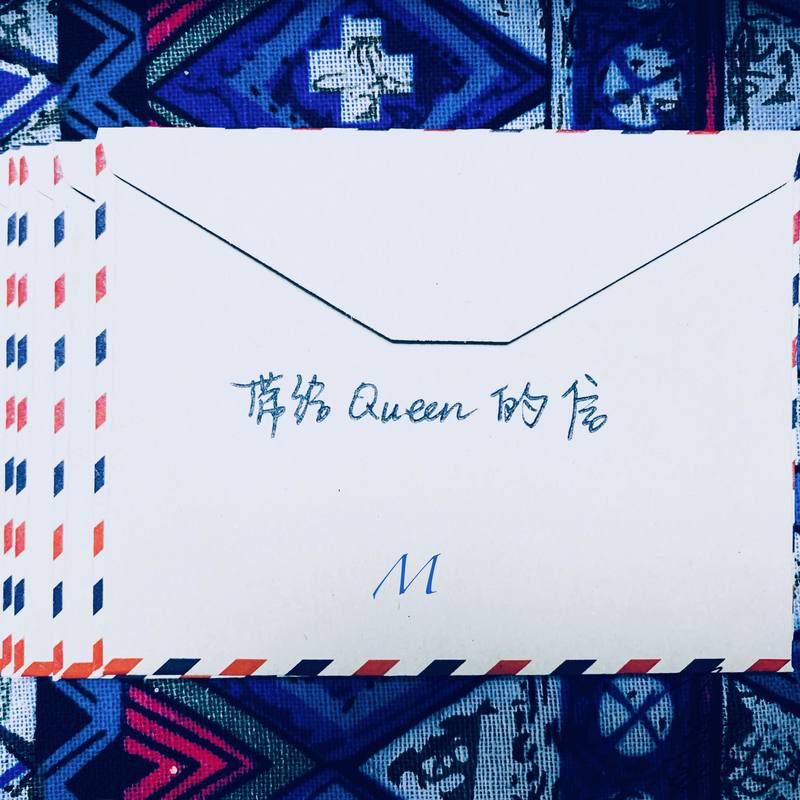 带给 Queen 的信
M